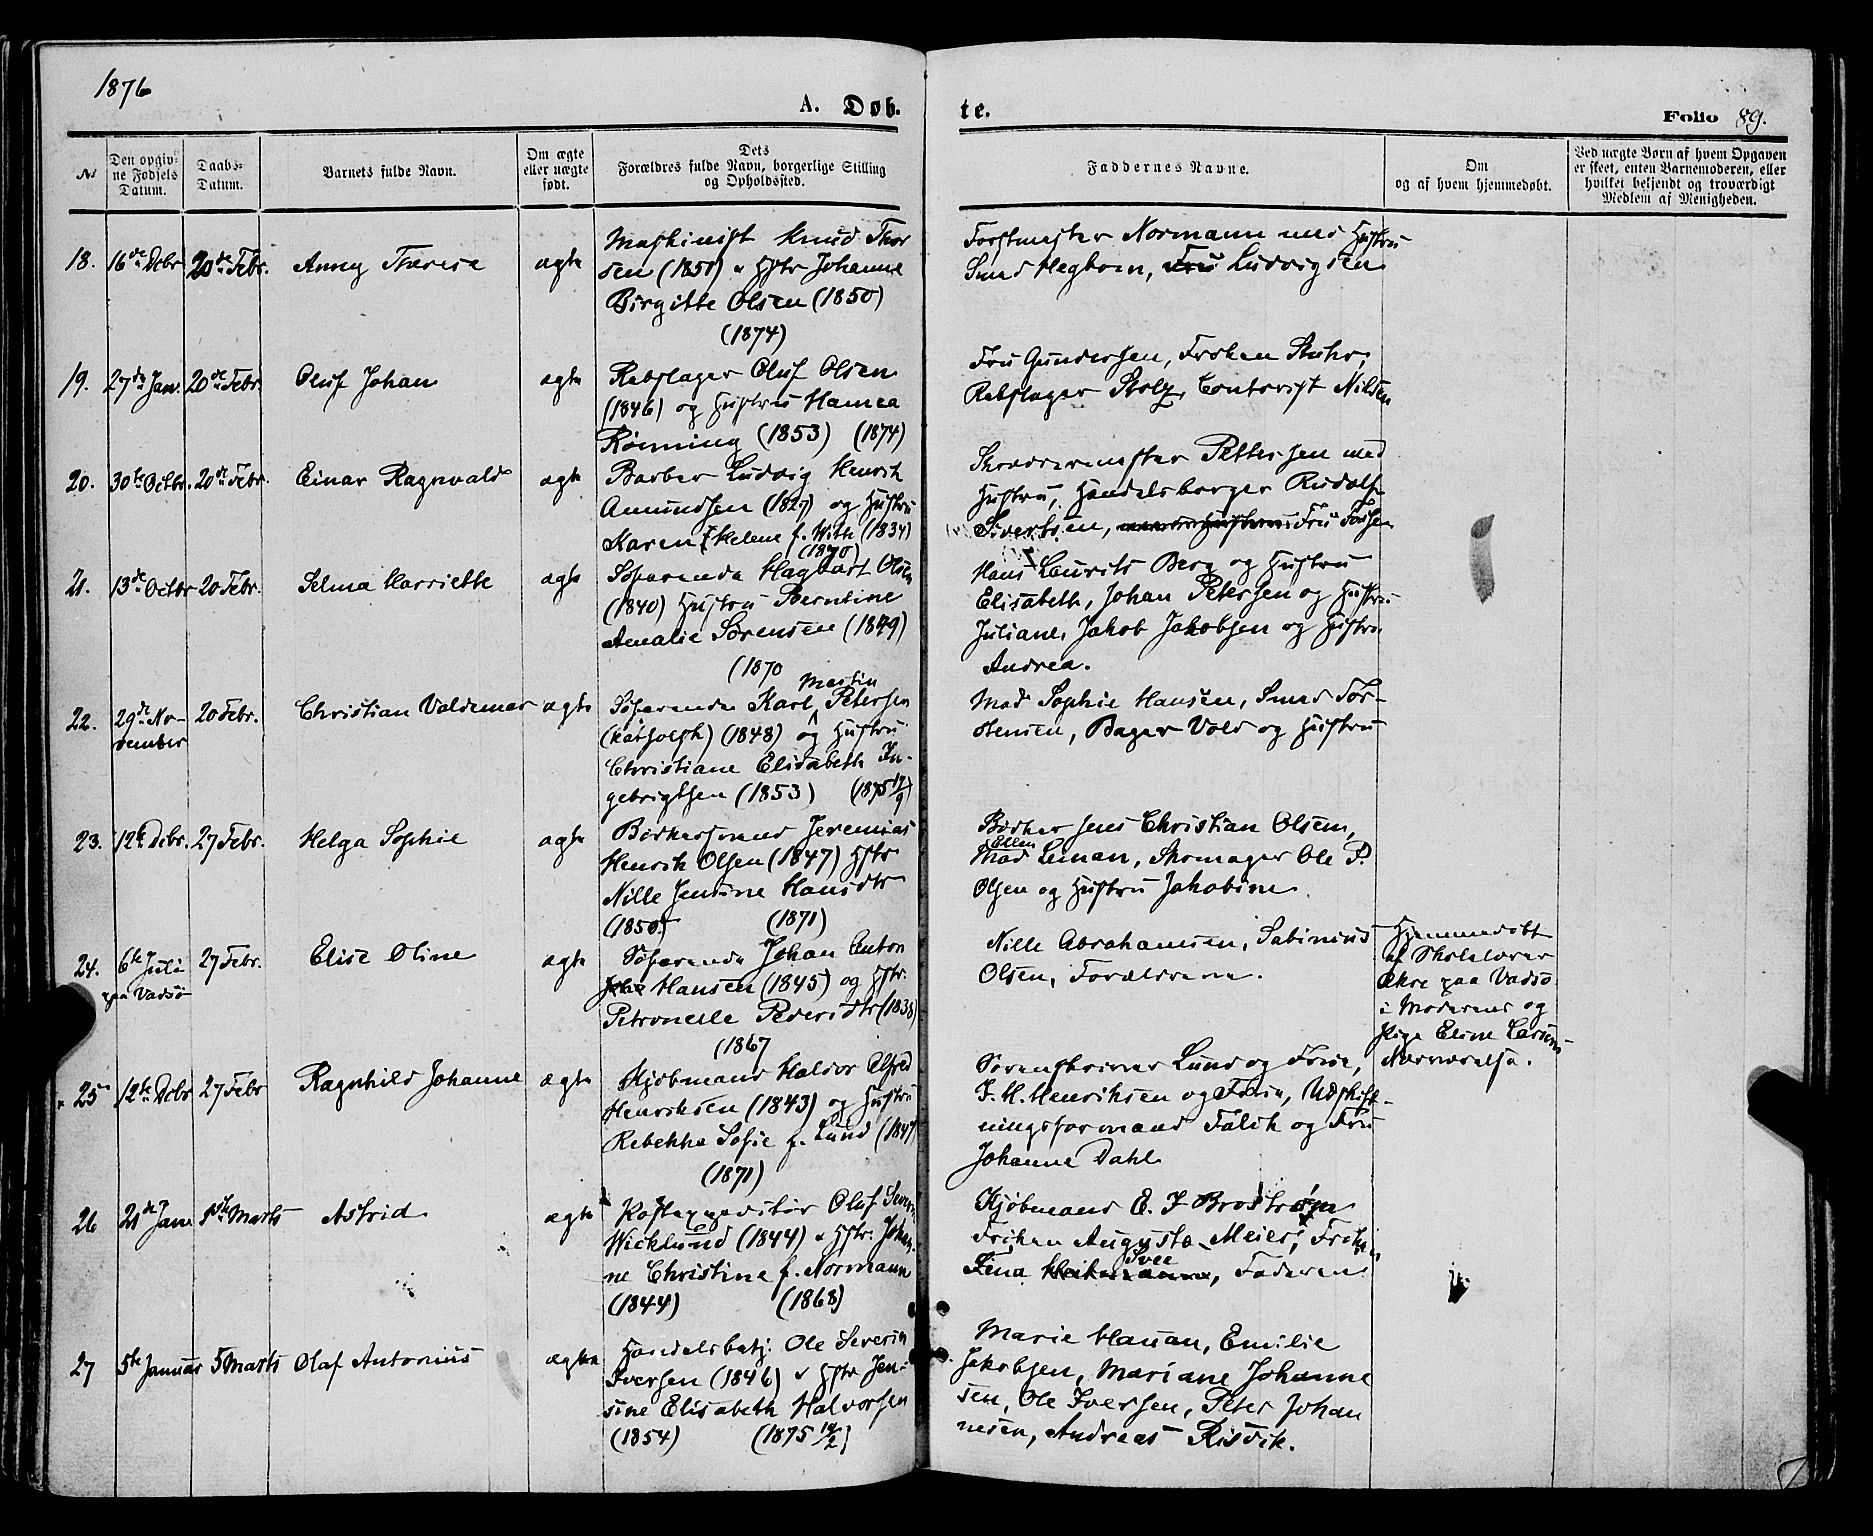 1876
A. Døb. te. Folio 89.
№
Den opgiv-
ne Fødsels
Datum.
Daabs-
Datum.
Barnets fulde Navn.
Om ægte
eller uægte
født.
Dets
Forældres fulde Navn, borgerlige Stilling
og Opholdssted.
Faddernes Navne.
Om
og af hvem hjemmedøbt.
Ved uægte Børn af hvem Opgaven
er skeet, enten Barnemoderen, eller
hvilket bekjendt og troværdigt
Medlem af Menigheden.
18. 16de Debr 20de Febr. Anny Therese ægte
Maskinist Knud Thor
sen (1851) & Hstr Johanne
Birgitte Olsen (1850)
(1874)
Forstmester Normann med Hustru
Smed Hegborn, Fru Ludvigsen
19. 27de Jan. 20de Febr. Oluf Johan ægte
Rebslager Oluf Olsen
(1846) og Hustru Hanna
Rönning (1853) (1874)
Fru Gundersen, Frøken Stuhr,
Rebslager Stolz, Contorist Nilsen
20. 30te Octbr. 20de Febr. Einar Ragnvald ægte
Barber Ludvig Henrik
Amundsen (1827) og Hustru
Karen Helene f. With (1834)
(1870)
Skræddermester Pettersen med
Hustru, Handelsborger Rudolf
Sivertsen, Fru
21. 13de Octbr 20 Febr. Selma Harriette ægte
Söfarende Hagbart Olsen
(1840) Hustru Berntine
Amalie Sörensen (1849)
(1870
Hans Laurits Berg og Hustru
Elisabeth, Johan Petersen og Hustru
Juliane, Jakob Jakobsen og Hustru
Andrea.
22. 29de No-
vember
20 Febr. Christian Valdemar ægte
Martin
Söfarende Karl Petersen
(katholsk) (1848) og Hustru
Christiane Elisabeth In-
gebrigtsen (1853) (1875 19/9)
Mad Sophie Hansen, Smed Tor-
stensen, Bager Vold og Hustru
23. 12te Debr. 27 Febr. Helga Sophie ægte
Jeremias
Henrik Olsen (1847) Hstr
Nille Jensine Hansdtr
(1850) (1871)
Bödker Jens Christian Olsen,
Ellen
Mad Leman, Skomager Ole P.
Olsen og Hustru Jakobine.
24. 6te Juli
paa Vadsö
27 Febr. Elise Oline ægte
Söfarende Johan Anton
Hansen (1845) og Hstr.
Petronelle Pedersdtr (1838)
(1867
Nille Abrahamsen, Sabinius
Olsen, Forældrene.
Hjemmedöbt
af Skolelærer
Ekre paa Vadsö
i Moderens og
Pige Eline
Nærværelse.
25 12te Debr 27 Febr Ragnhild Johanne ægte
Kjöbmand Haldor Alfred
Henriksen (1843) og Hustru
Rebekka Sofie f. Lund (1847)
(1871)
Sorenskriver Lund og Frue,
J. H. Henriksen og Frue, Udskift-
ningsformand Falck og Fru
Johanne Dahl
26 21de Jan 5te Marts Astrid ægte
Postexpeditör Oluf Severin
Wicklund (1844) & Hstr. Johan-
ne Christine f. Normann
(1844) (1868)
Kjöbmand E. J Broström
Fröken Augusta Meier, Fröken
Svee
Fina , Faderen
27 5te Januar 5 Marts Olaf Antonius ægte
Handelsbetj. Ole Severin
Iversen (1846) & Hstr Jen-
sine Elisabeth Halvorsen
(1854) (1875 14/2)
Marie Hauan, Emilie
Jakobsen, Mariane Johanne
sen, Ole Iversen, Peter Johan
nesen, Andreas Risvik.